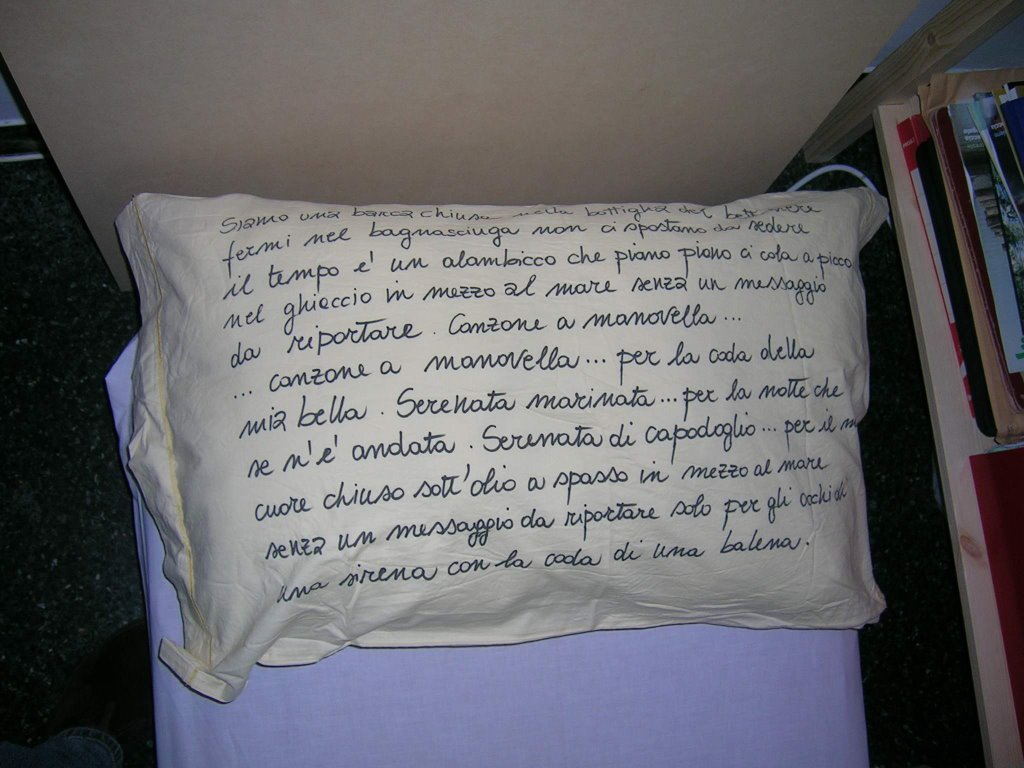 Siamo una barca chiusa nella bottiglia del bere
fermi nel bagnasciuga non ci spostano da sedere
il tempo e' un alambicco che piano piano ci cola a picco
nel ghiaccio in mezzo al mare senza un messaggio
da riportare. Canzone a manovella...
... canzone a manovella... per la coda della
mia bella. Serenata marinata... per la notte che
se n'e' andata. Serenata di capodoglio... per il
cuore chiuso sott'olio a spasso in mezzo al mare
senza un messaggio da riportare solo per gli occhi di
una sirena con la coda di una balena.